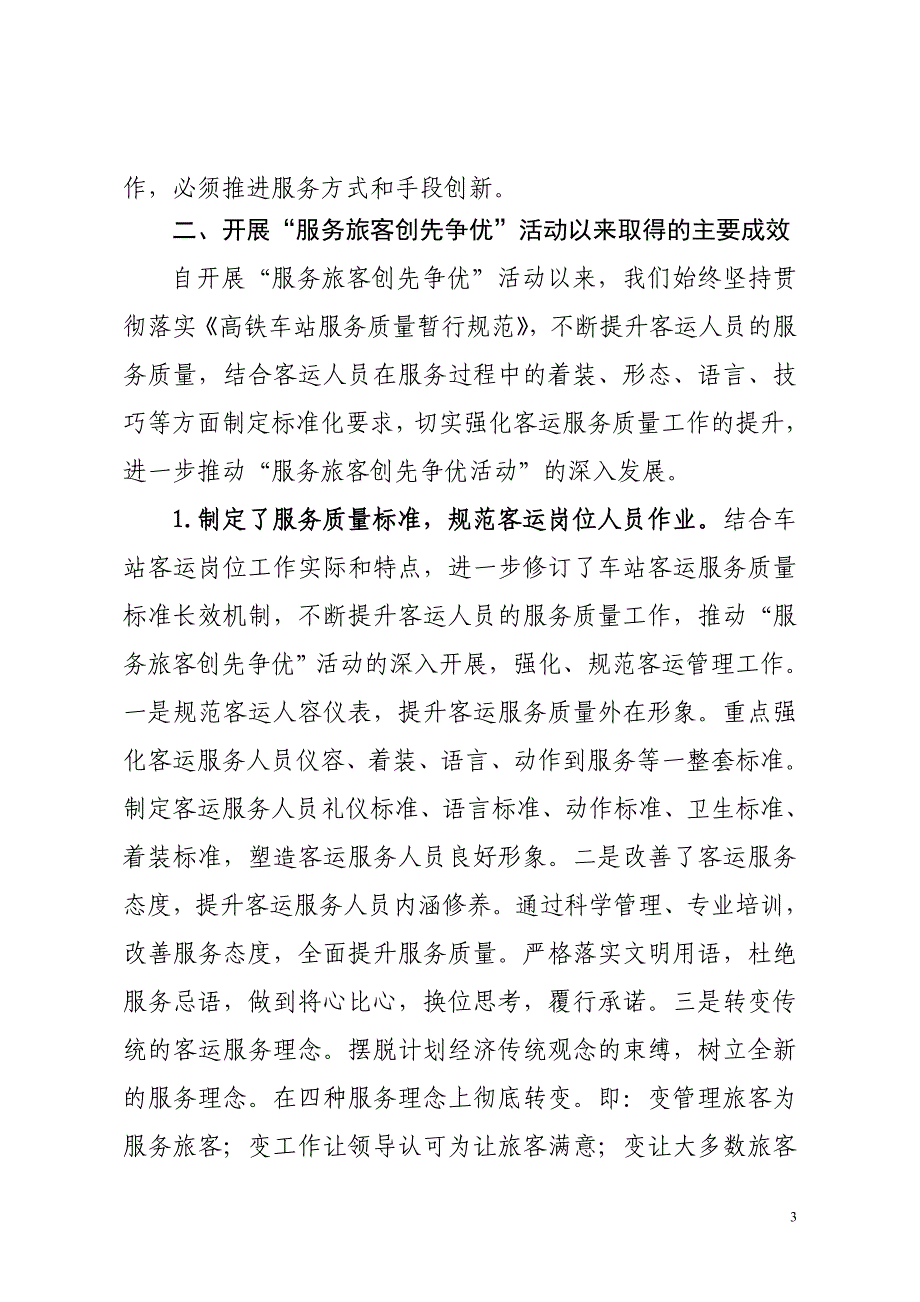 作，必须推进服务方式和手段创新。
二、开展“服务旅客创先争优”活动以来取得的主要成效
自开展“服务旅客创先争优”活动以来，我们始终坚持贯
彻落实《高铁车站服务质量暂行规范》，不断提升客运人员的服
务质量，结合客运人员在服务过程中的着装、形态、语言、技
巧等方面制定标准化要求，切实强化客运服务质量工作的提升，
进一步推动“服务旅客创先争优活动”的深入发展。
1.制定了服务质量标准，规范客运岗位人员作业。结合车
站客运岗位工作实际和特点，进一步修订了车站客运服务质量
标准长效机制，不断提升客运人员的服务质量工作，推动“服
务旅客创先争优”活动的深入开展，强化、规范客运管理工作。
一是规范客运人容仪表，提升客运服务质量外在形象。重点强
化客运服务人员仪容、着装、语言、动作到服务等一整套标准。
制定客运服务人员礼仪标准、语言标准、动作标准、卫生标准、
着装标准，塑造客运服务人员良好形象。二是改善了客运服务
态度，提升客运服务人员内涵修养。通过科学管理、专业培训，
改善服务态度，全面提升服务质量。严格落实文明用语，杜绝
服务忌语，做到将心比心，换位思考，覆行承诺。三是转变传
统的客运服务理念。摆脱计划经济传统观念的束缚，树立全新
的服务理念。在四种服务理念上彻底转变。即：变管理旅客为
服务旅客；变工作让领导认可为让旅客满意；变让大多数旅客
3